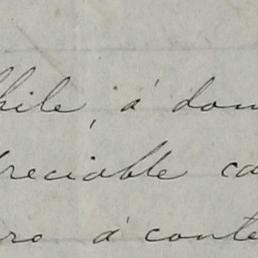 hile, á don
reciable ca
ro á conte